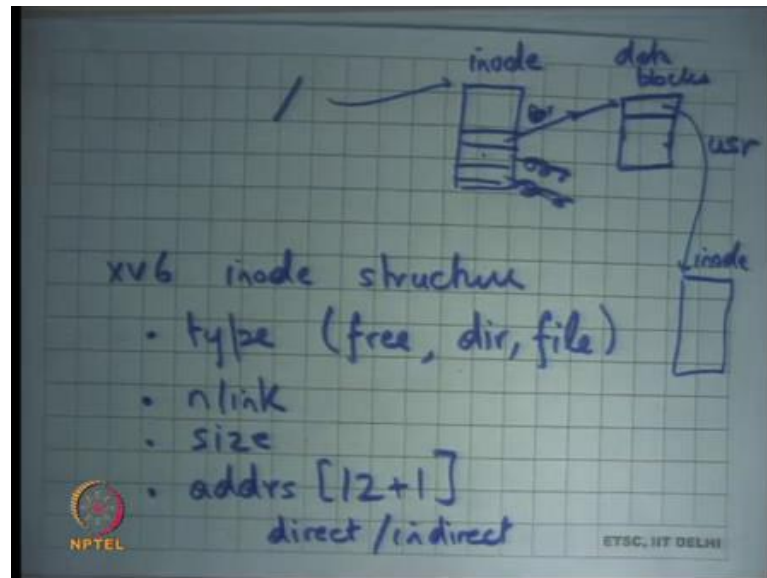 inode
data
blocks
/
usr
inode
xv6 inode structure
• type (free, dir, file)
• nlink
• size
• addrs [12+1]
direct / indirect
NPTEL
ETSC, IIT DELHI